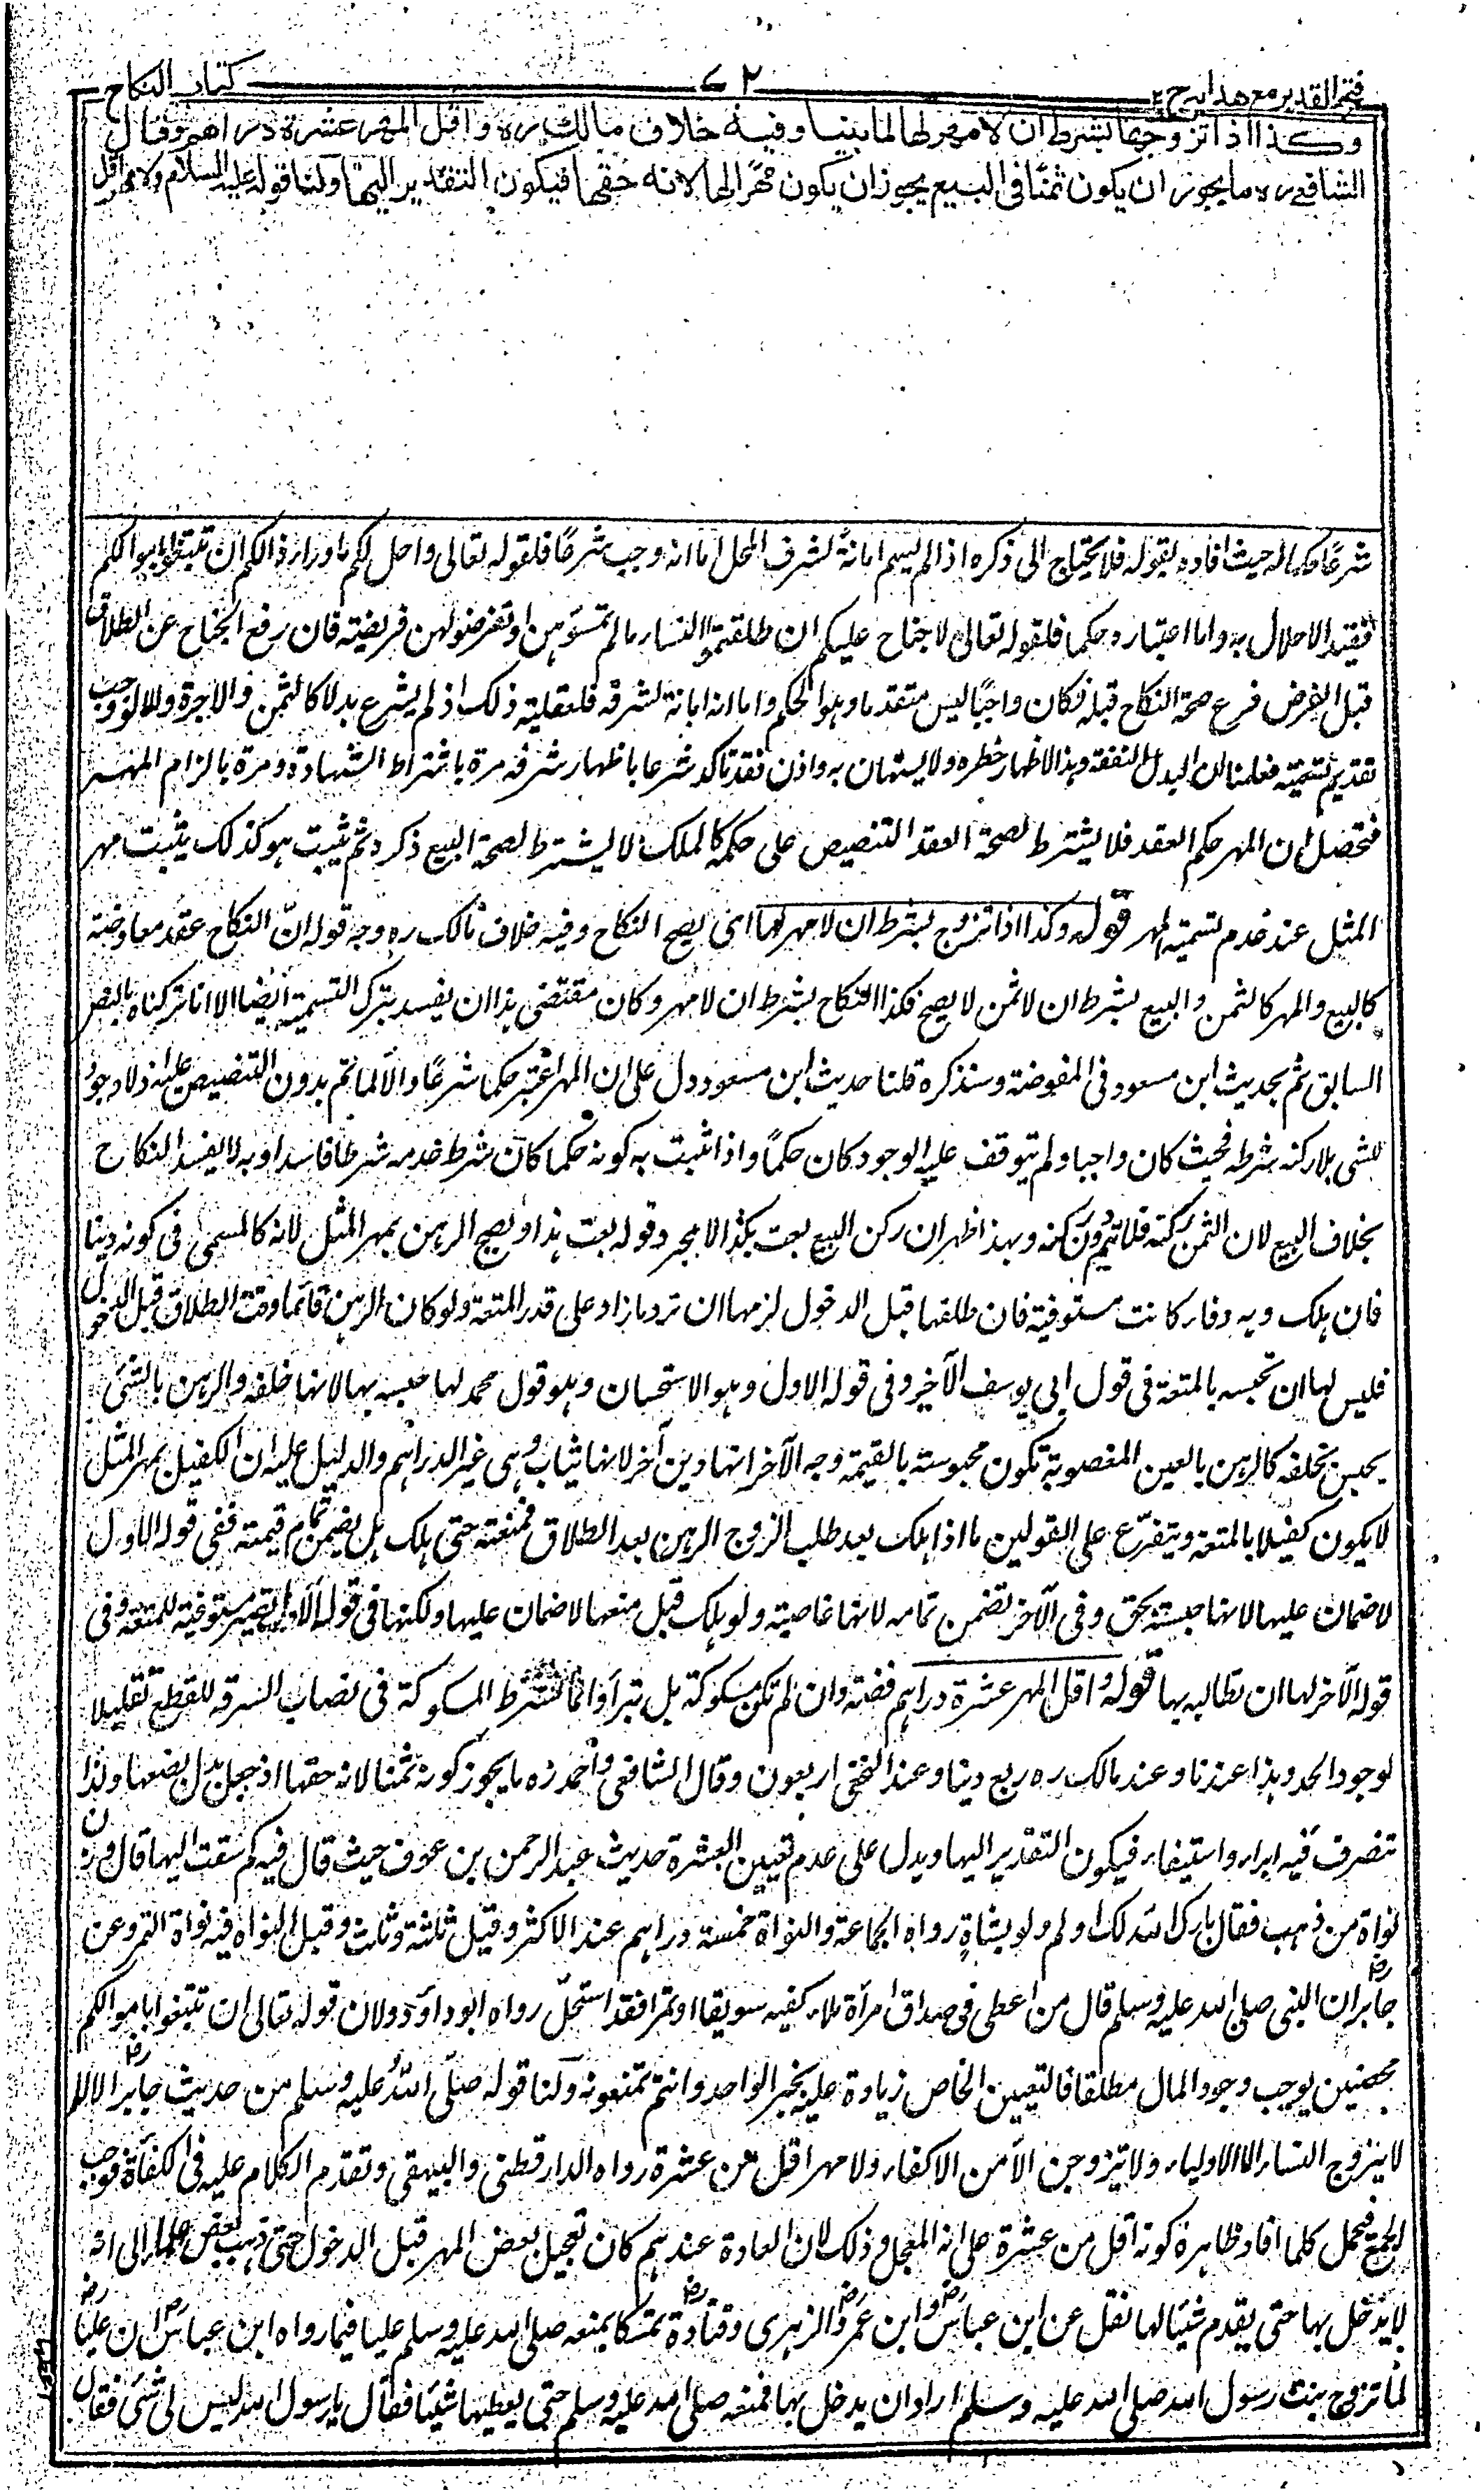 فتح القدير مع هدايه ج ٢
٢
كتاب النكاح
وكذا اذا تزوجها بشرط ان لا مهر لها لما بينا وفيه خلاف مالك ره واقل المهر عشرة دراهم وقال
الشافعي ره ما يجوز ان يكون ثمنا في البيع يجوز ان يكون مهرا لها لانه حقها فيكون التقدير اليها ولنا قوله عليه السلام ولا مهر اقل
شرعا حكما له حيث افاده بقوله فلا يحتاج الى ذكره اذا لم يسم ابانة لشرف المحل اما انه وجب شرعا فلقوله تعالى واحل لكم ما وراء ذالكم ان تبتغوا باموالكم
فقيد الاحلال به واما اعتباره حكما فلقوله تعالى لا جناح عليكم ان طلقتم النساء ما لم تمسوهن او تفرضوا لهن فريضة فان رفع الجناح عن الطلاق
قبل الفرض فرع صحة النكاح قبله فكان واجبا ليس متقدما وهو الحكم واما انه ابانة لشرفه فلعقلية ذلك اذ لم يشرع بدلا كالثمن والاجرة والا لوجب
تقديم تسميته فعلمنا ان البدل النفقة وهذا لاظهار خطره ولا يستهان به واذن فقد تاكد شرعا باظهار شرفه مرة باشتراط الشهادة ومرة بالزام المهر
فتحصل ان المهر حكم العقد فلا يشترط لصحة العقد التنصيص على حكمه كالملك لا يشترط لصحة البيع ذكره ثم يثبت هو كذلك يثبت مهر
المثل عند عدم تسمية المهر قوله وكذا اذا تزوج بشرط ان لا مهر لها اي يصح النكاح وفيه خلاف مالك ره وجه قوله ان النكاح عقد معاوضة
كالبيع والمهر كالثمن والبيع بشرط ان لا ثمن لا يصح فكذا النكاح بشرط ان لا مهر وكان مقتضى هذا ان يفسد بترك التسمية ايضا الا انا تركناه بالنص
السابق ثم بحديث ابن مسعود في المفوضة وسنذكره قلنا حديث ابن مسعود دل على ان المهر اعتبر حكما شرعا والا لما تم بدون التنصيص عليه اذ لا وجود
للشي بلا ركنه شرطه فحيث كان واجبا ولم يتوقف عليه الوجود كان حكما واذا ثبت به كونه حكما كان شرط عدمه شرطا فاسدا وبه لا يفسد النكاح
بخلاف البيع لان الثمن ركنه فلا يتم دون ركنه وبهذا ظهر ان ركن البيع بعت بكذا لا مجرد قوله بعت هذا ويصح الرهن بمهر المثل لانه كالمسمى في كونه دينا
فان هلك وبه وفاء كانت مستوفية فان طلقها قبل الدخول لزمها ان ترد ما زاد على قدر المتعة ولو كان الرهن قائما وقت الطلاق قبل الدخول
فليس لها ان تحبسه بالمتعة في قول ابي يوسف الآخر وفي قوله الاول وهو الاستحسان وهو قول محمد لها حبسه بها لانها خلفه والرهن بالشئ
يحبس بخلفه كالرهن بالعين المغصوبة تكون محبوسة بالقيمة وجه الآخر انها دين آخر لانها ثياب وهي غير الدراهم والدليل عليه ان الكفيل بمهر المثل
لا يكون كفيلا بالمتعة ويتفرع على القولين ما اذا هلك بعد طلب الزوج الرهن بعد الطلاق فمنعته حتى هلك هل يضمن تمام قيمته ففي قوله الاول
لا ضمان عليها لانها حبسته بحق وفي الآخر تضمن تمامه لانها غاصبة ولو هلك قبل منعها لا ضمان عليها ولكنها في قوله الاول تصير مستوفية للمتعة وفي
قوله الآخر لها ان تطالبه بها قوله واقل المهر عشرة دراهم فضة وان لم تكن مسكوكة بل تبرا وانما تشترط المسكوكة في نصاب السرقة للقطع تقليلا
لوجود الحد وهذا عندنا وعند مالك ره ربع دينار وعند النخعي اربعون وقال الشافعي واحمد ره ما يجوز كونه ثمنا لانه حقها اذ جعل بدل بضعها ولذا
تتصرف فيه ابراء واستيفاء فيكون التقدير اليها ويدل على عدم تعيين العشرة حديث عبد الرحمن بن عوف حيث قال فيه كم سقت اليها قال وزن
نواة من ذهب فقال بارك الله لك اولم ولو بشاة رواه الجماعة والنواة خمسة دراهم عند الاكثر وقيل ثلثة وثلث وقيل النواة فيه نواة التمر وعن
جابر رض ان النبي صلى الله عليه وسلم قال من اعطى في صداق امرأة ملاء كفيه سويقا او تمرا فقد استحل رواه ابو داود ولان قوله تعالى ان تبتغوا باموالكم
محصنين يوجب وجود المال مطلقا فالتعيين الخاص زيادة عليه بخبر الواحد وانتم تمنعونه ولنا قوله صلى الله عليه وسلم من حديث جابر رض الا لا
لا يزوج النساء الا الاولياء ولا تزوجن الا من الاكفاء ولا مهر اقل من عشرة رواه الدارقطني والبيهقي وتقدم الكلام عليه في الكفأة فوجب
الجمع فيحمل كلما افاد ظاهره كونه اقل من عشرة على انه المعجل وذلك لان العادة عندهم كان تعجيل بعض المهر قبل الدخول حتى ذهب بعض العلماء الى انه
لا يدخل بها حتى يقدم شيئا لها نقل عن ابن عباس رض وابن عمر رض والزهري وقتادة رض تمسكا بمنعه صلى الله عليه وسلم عليا فيما رواه ابن عباس رض ان عليا رض
لما تزوج بنت رسول الله صلى الله عليه وسلم اراد ان يدخل بها فمنعه صلى الله عليه وسلم حتى يعطيها شيئا فقال يا رسول الله ليس لي شئ فقال